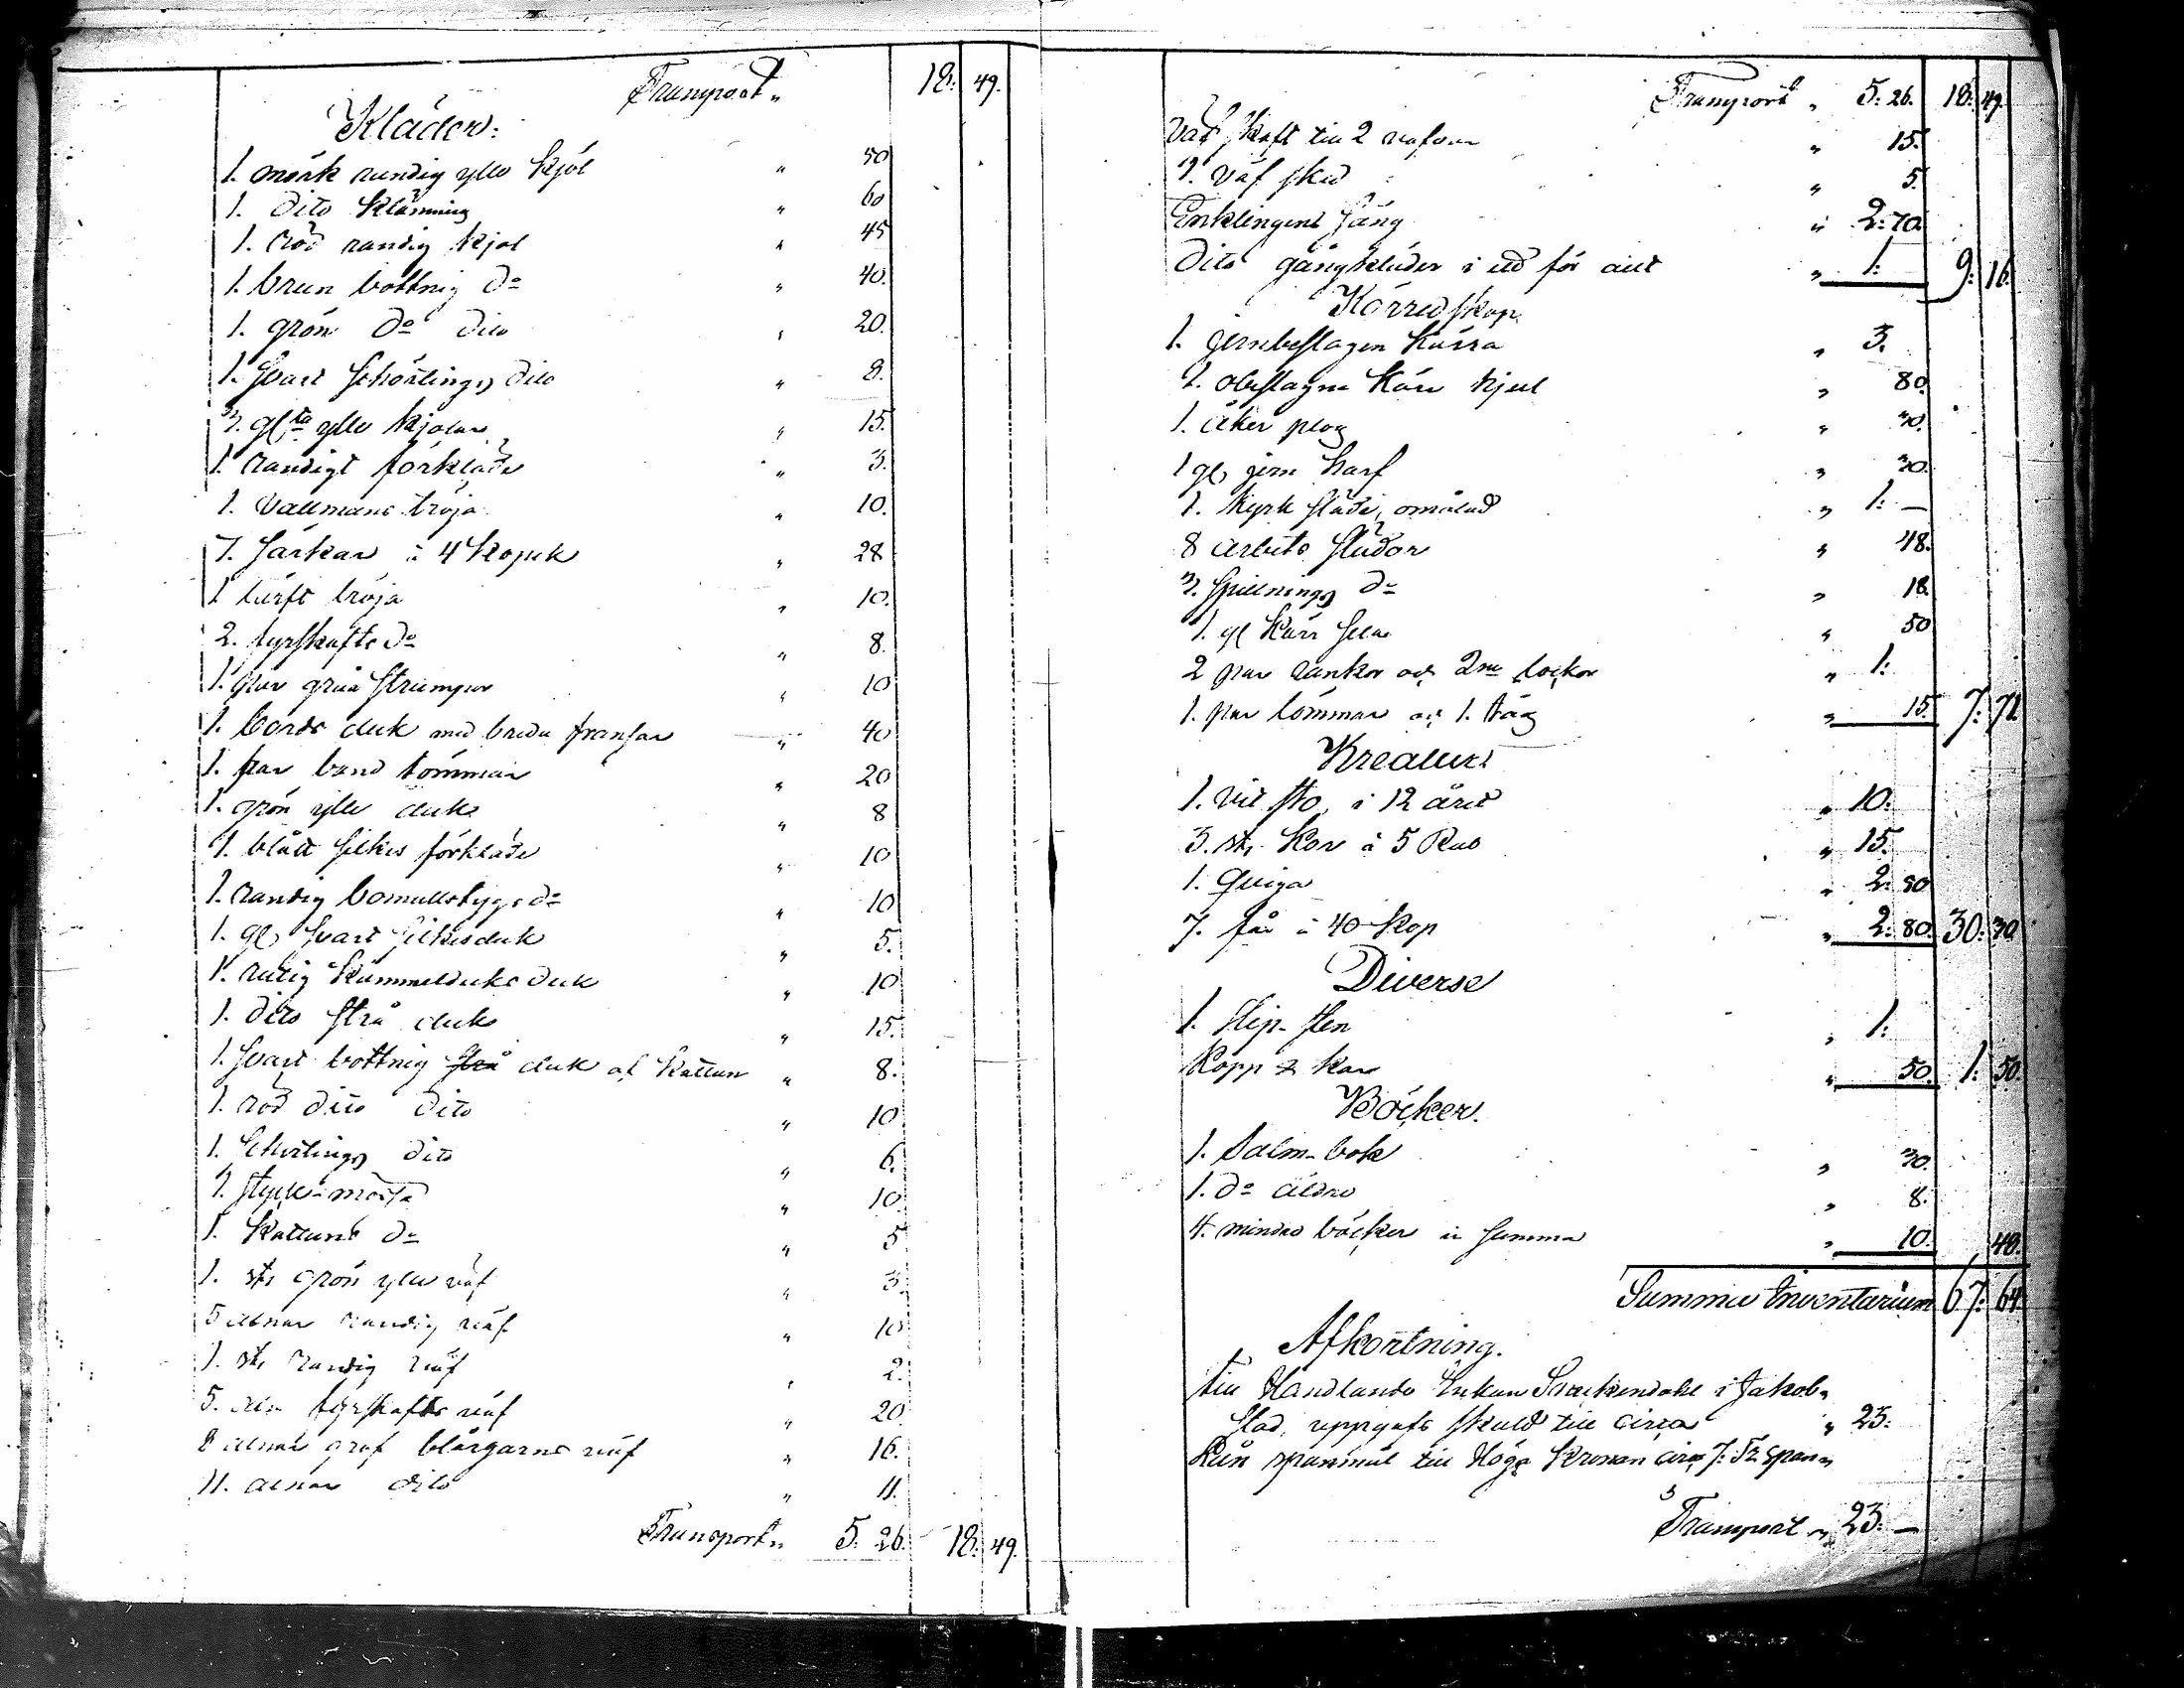 Transport " 18: 49.
Kläder:
1. mörk randig ylle kjol " 50
1. Dito klämning " 60
1. röd randig kjol " 45
1. brun bottnig do " 40.
1. grön do dito " 20.
1. Svart schörtings dito " 8.
3. gl. ylle kjolar " 15.
1. randigt förkläde " 3.
1. Vallmans tröja " 10.
7. särkar à 4 kopek " 28
1 lärft tröja " 10.
2. fyrskafts do " 8.
1. par gråa strumpor " 10
1. bords duk med breda fransar " 40
1. par band tömmar " 20
1. grön ylle duk " 8
1. blått silkes förkläde " 10
1. randig bomullstygs do " 10
1. gl. svart silkesduk " 5.
1. rutig kammelduks duk " 10
1. dito strå duk " 15.
1. svart bottnig duk af kattun " 8.
1. röd dito dito " 10
1. Schertings dito " 6.
1. stycke-mössa " 10.
1. kattuns do " 5
1. st. grön ylle väf " 3.
5 alnar randig väf " 10
1. st. randig väf " 2.
5. aln. fyrskafts väf " 20
8 alnar grof blårgarns väf " 16.
11. alnar dito " 11.
Transport " 5. 26. 18: 49.
Transport " 5: 26. 18: 49.
Väf skaft till 2 väfvar " 15.
väf sked " 5.
Enklingens säng " 2: 70
Dito gångkläder i ett för allt " 1: 9: 16.
Körredskap.
1. jernbeslagen kärra " 3.
1. obeslagna kärr hjul " 80
1. åker plog " 30.
1 gl. jern harf " 30.
1. kyrk släde, omålad " 1: —
8 arbets slädor " 48.
3. spillnings do " 18.
1. gl kärr sela " 50
2 par rankor och 2ne lockor " 1:
1. par tömmar och 1. tåg " 15. 7: 71
Kreatur:
1. vit sto, i 12 året " 10.
3. st. Kor à 5 Rub " 15.
1. Qviga " 2: 50
7. får à 40 kop " 2: 80. 30: 30
Diverse
1. slip-sten " 1:
Kopp kar " 50. 1: 50.
Böcker.
1. Salm-bok " 30.
1. do äldre " 8.
4. mindre böcker in summa " 10. 48.
Summa Inventarium 67: 64.
Afkortning.
Till Handlande Enkan i Jakob-
stad, uppgafs skuld till circa " 23.
Lån spanmål till Höga Kronan circa 7: span
Transport " 23. —